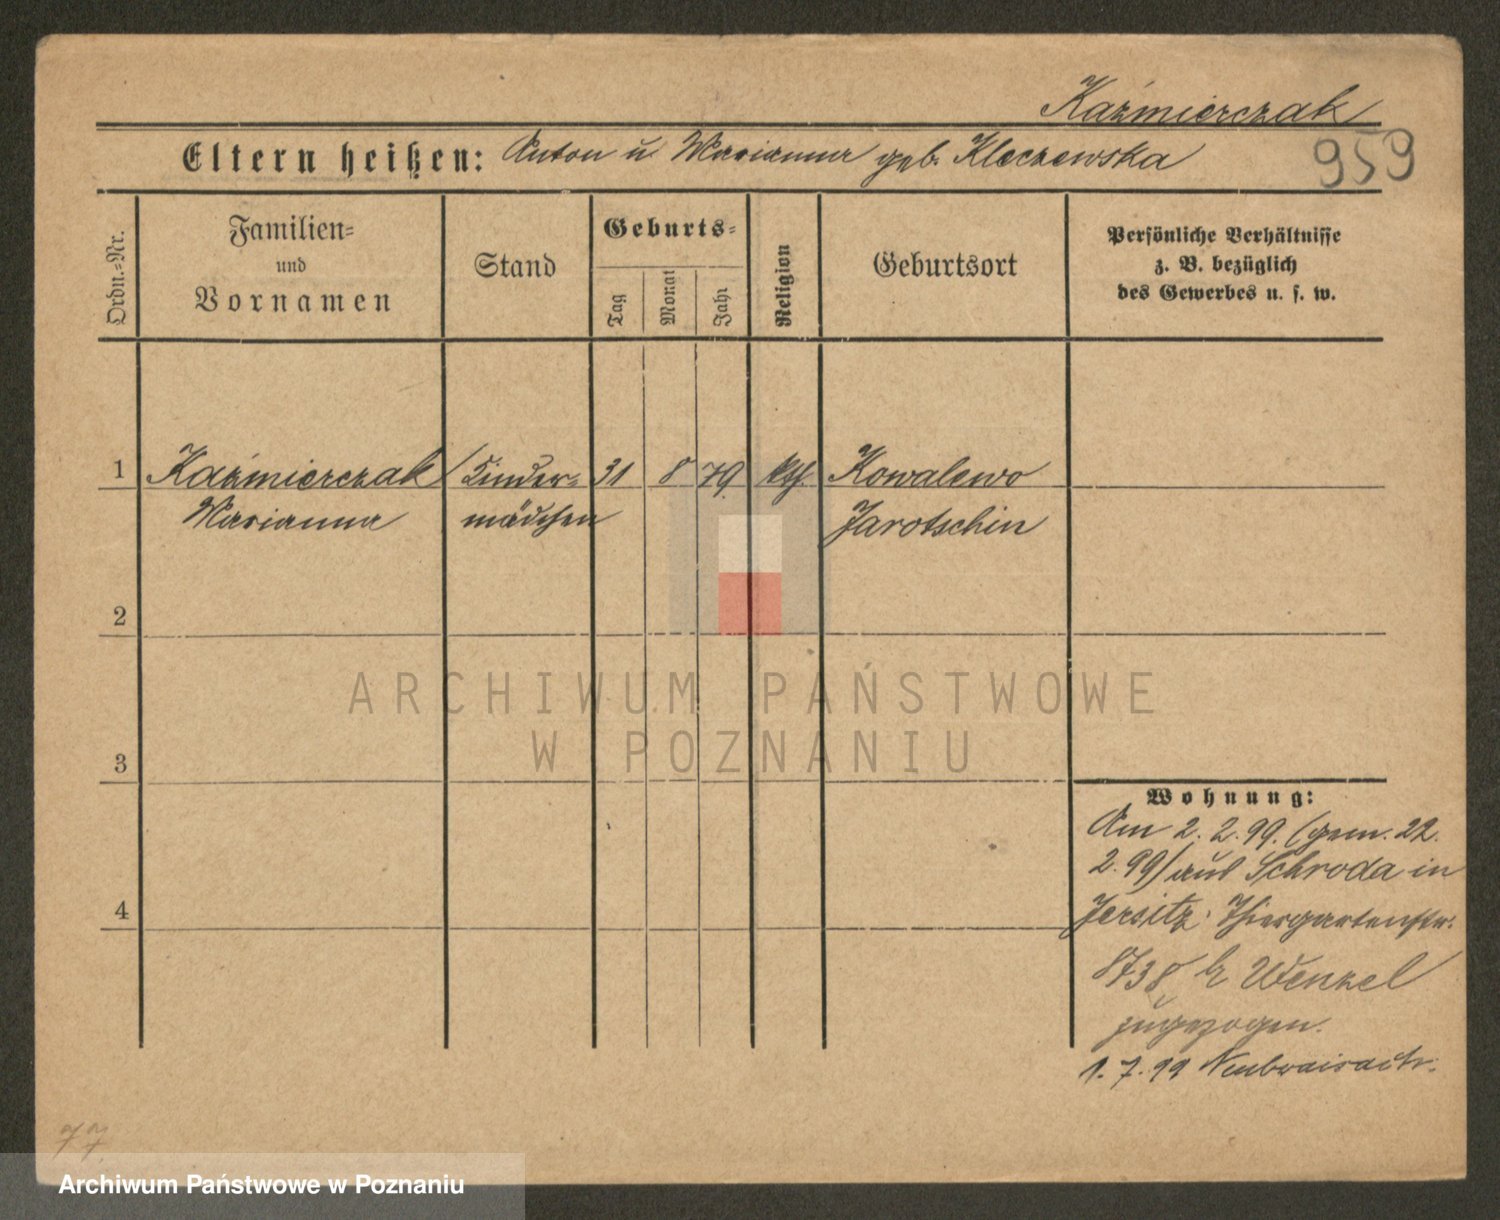 Kaźmierczak
Eltern heißen: Anton u Marianna geb. Kleczewska
959
Ordn.-Nr.
Familien-
und
Vornamen
Stand
Geburts-
Tag
Monat
Jahr
Religion
Geburtsort
Persönliche Verhältnisse
z. B. bezüglich
des Gewerbes u. s. w.
1 Kaźmierczak Kinder- 31 8 79 kth. Kowalewo
Marianna mädchen Jarotschin
2
ARCHIWUM PAŃSTWOWE
W POZNANIU
3
Wohnung:
Am 2. 2. 99. (gem. 22.
2. 99) aus Schroda in
4
Jersitz: Thiergartenstr.
8738 b Wenzel
zugezogen.
1. 7. 99
77
Archiwum Państwowe w Poznaniu